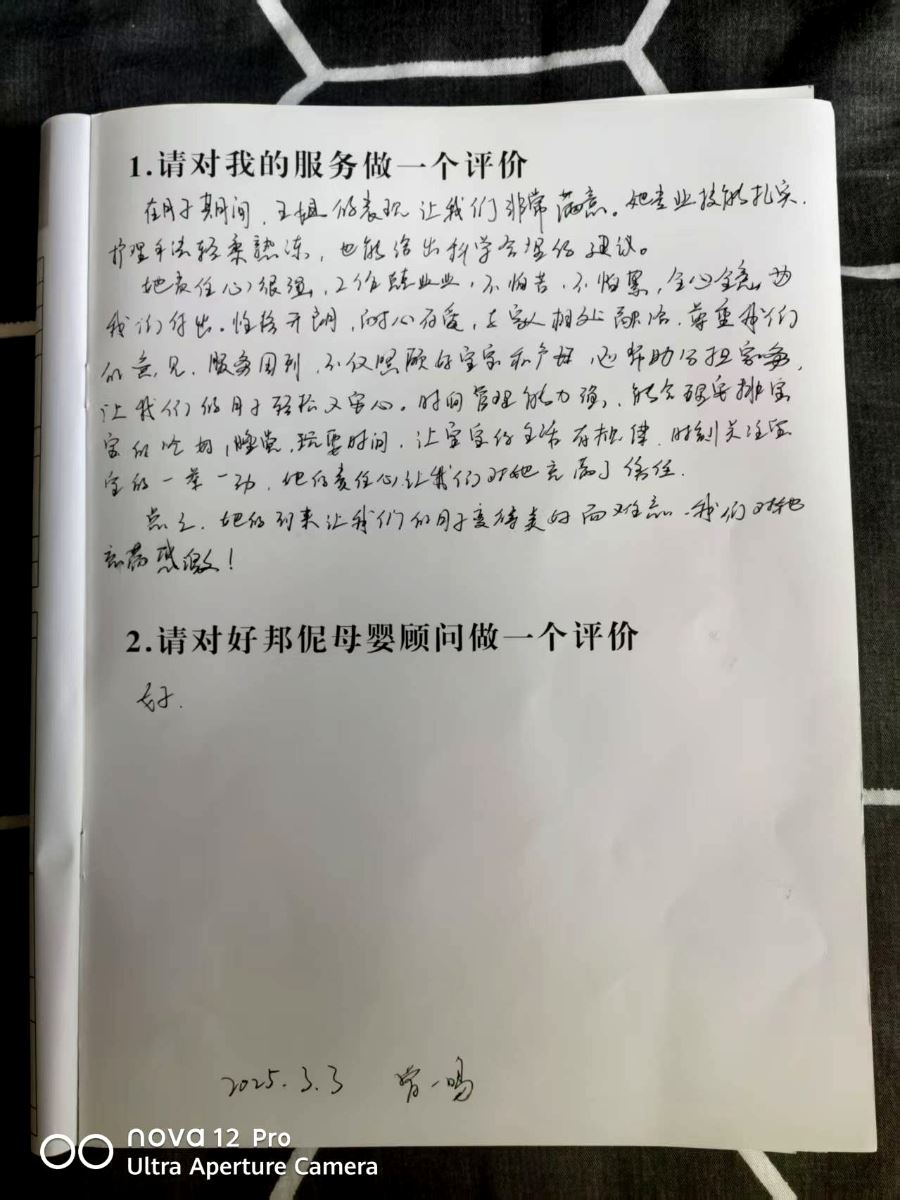 1.请对我的服务做一个评价
在月子期间,王姐的表现让我们非常满意。她专业技能扎实,
护理手法轻柔熟练,也能给出科学合理的建议。
她责任心很强,工作兢业业,不怕苦,不怕累,全心全意为
我们付出。性格开朗,耐心有爱,与家人相处融洽,尊重我们
的意见,服务周到,不仅照顾好宝宝和产妇,还帮助分担家务,
让我们的月子轻松又安心。时间管理能力强,能合理安排宝
宝的吃奶,睡觉,玩耍时间,让宝宝的生活有规律,时刻关注宝
宝的一举一动,她的责任心让我们对她充满了信任.
总之,她的到来让我们的月子变得美好而难忘,我们对她
充满感激!
2.请对好邦伲母婴顾问做一个评价
好.
2025.3.3 曾一鸣
nova 12 Pro
Ultra Aperture Camera